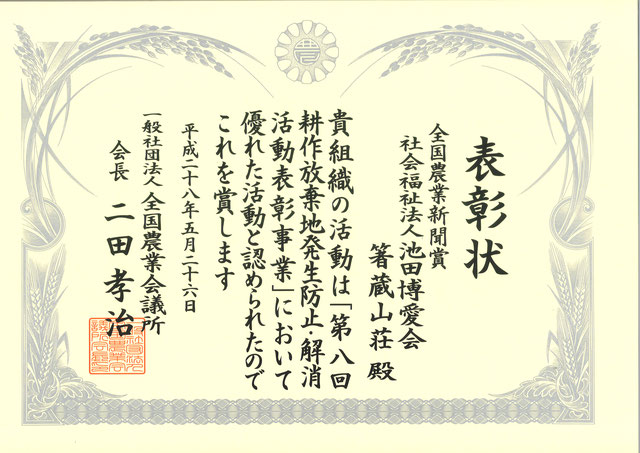 表彰状
全国農業新聞賞
社会福祉法人池田博愛会
箸蔵山荘 殿
貴組織の活動は「第八回
耕作放棄地発生防止・解消
活動表彰事業」において
優れた活動と認められたので
これを賞します
平成二十八年五月二十六日
一般社団法人全国農業会議所
会長 二田孝治